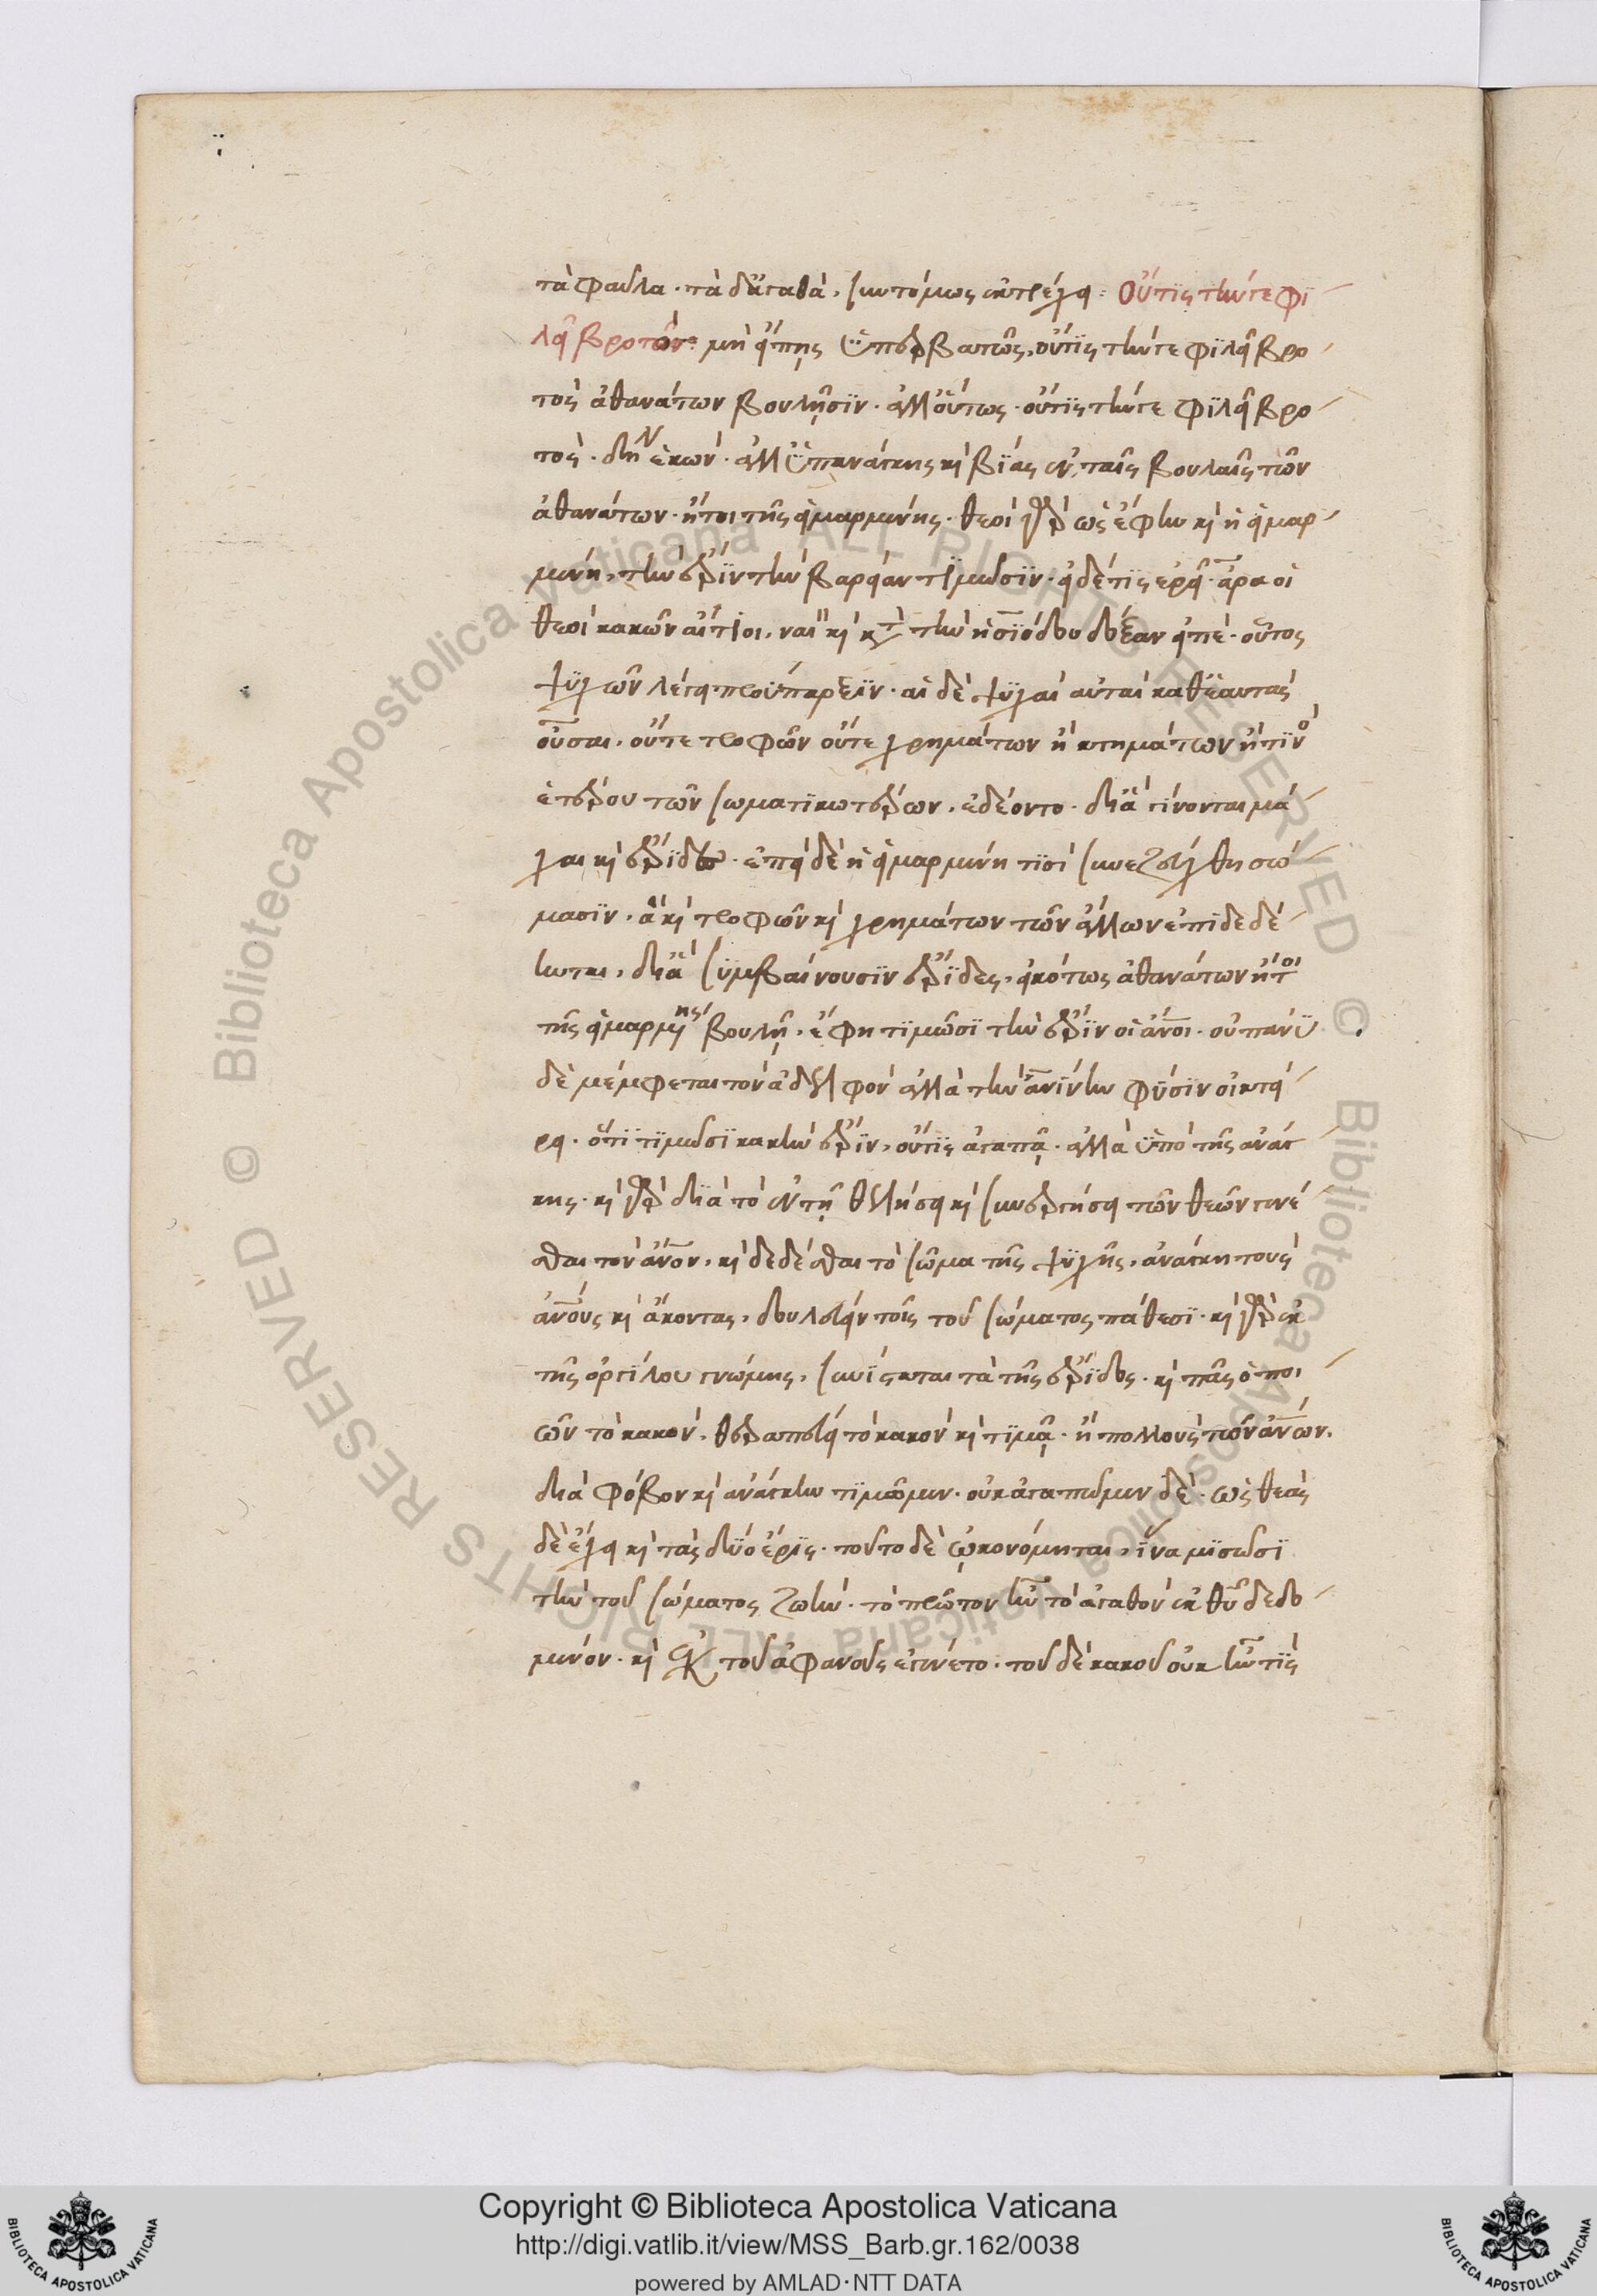 τὰ φαῦλα· τὰ δ' ἀγαθὰ, συντόμως ἐκτρέχει: Οὔτις τήνγε φι
λεῖ βροτὸς: μὴ εἴπῃς ὑπερβατῶς, οὔτις τήνγε φιλεῖ βρο
τὸς ἀθανάτων βουλῇσιν· ἀλλ' οὕτως· οὔτις τήνγε φιλεῖ βρο
τὸς. δὴν ἑκών· ἀλλ' ὑπ' ἀνάγκης καὶ βίας ἐν ταῖς βουλαῖς τῶν
ἀθανάτων· ἤτοι τῆς εἱμαρμένης. θεοὶ γὰρ ὡς ἔφην καὶ ἡ εἱμαρ
μένη, τὴν ἔριν τὴν βαρεῖαν τιμῶσιν. εἰ δέ τις ἐρεῖ. ἆρα οἱ
θεοὶ κακῶν αἴτιοι, ναὶ καὶ κατὰ τὴν ἡσιόδου δόξαν εἰπέ. οὗτος
ψυχῶν λέγει προΰπαρξιν. αἱ δὲ ψυχαὶ αὐταὶ καθ' ἑαυτὰς
οὖσαι, οὔτε τροφῶν οὔτε χρημάτων ἢ κτημάτων ἤ τινο
ἑτέρου τῶν σωματικωτέρων, ἐδέοντο. δι' ἃ γίνονται μά
χαι καὶ ἔριδες. ἐπεὶ δὲ ἡ εἱμαρμένη τισὶ συνεζεύχθη σώ
μασιν, ἃ καὶ τροφῶν καὶ χρημάτων τῶν ἄλλων ἐπιδεδέ
ηνται, δι' ἃ συμβαίνουσιν ἔριδες, εἰκότως ἀθανάτων ἤτοι
τῆς εἱμαρμένης βουλῇ, ἔφη τιμῶσι τὴν ἔριν οἱ ἄνοι. οὐ πάνυ
δὲ μέμφεται τὸν ἀδελφὸν ἀλλὰ τὴν ἀνίνην φύσιν οἰκτεί
ρει. ὅτι τιμῶσι κακὴν ἔριν, οὔτις ἀγαπᾷ. ἀλλὰ ὑπὸ τῆς ἀνάγ
κης. καὶ γὰρ διὰ τὸ ἐν τῇ θελήσει καὶ συνεργήσει τῶν θεῶν γενέ
σθαι τὸν ἄνον, καὶ δεδέσθαι τὸ σῶμα τῆς ψυχῆς, ἀνάγκη τοὺς
ἀνους καὶ ἄκοντας, δουλεύειν τοῖς τοῦ σώματος πάθεσι. καὶ γὰρ ἐκ
τῆς ὀργίλου γνώμης, συνίσταται τὰ τῆς ἔριδος. καὶ πᾶς ὁ ποι
ῶν τὸ κακόν, θεραπεύει τὸ κακὸν καὶ τιμᾷ. ἢ πολλοὺς τῶν ἀνων,
διὰ φόβον καὶ ἀνάγκην τιμῶμεν. οὐκ ἀγαπῶμεν δὲ. ὡς θεὰς
δὲ ἔχει καὶ τὰς δύο ἔρις. τοῦτο δὲ ᾠκονόμηται, ἵνα μισῶσι
τὴν τοῦ σώματος ζωήν. τὸ πρῶτον ἦν τὸ ἀγαθὸν ἐκ θυ δεδο
μένον. καὶ ἐκ τοῦ ἀφανοῦς ἐγένετο. τοῦ δὲ κακοῦ οὐκ ἦν τις
Copyright © Biblioteca Apostolica Vaticana
http://digi.vatlib.it/view/MSS_Barb.gr.162/0038
powered by AMLAD·NTT DATA